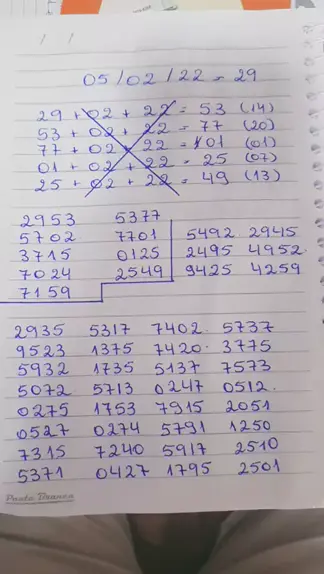 05/02/22 = 29
29 + 02 + 22 = 53 (14)
53 + 02 + 22 = 77 (20)
77 + 02 + 22 = 101 (01)
01 + 02 + 22 = 25 (07)
25 + 02 + 22 = 49 (13)
2953 5377
5702 7701 5492 2945
3715 0125 2495 4952
7024 2549 9425 4259
7159
2935 5317 7402 5737
9523 1375 7420 3775
5932 1735 5137 7573
5072 5713 0247 0512
0275 1753 7915 2051
0527 0274 5791 1250
7315 7240 5917 2510
5371 0427 1795 2501